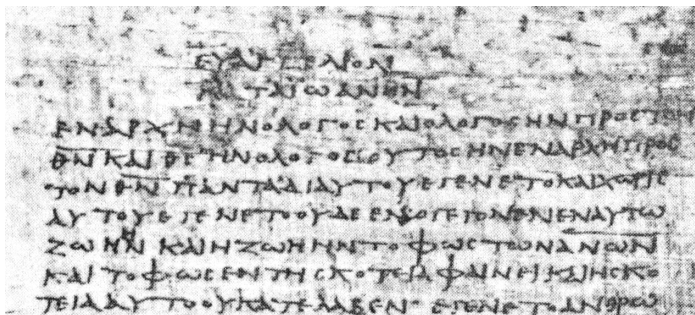 ΕΥΑΓΓΕΛΙΟΝ
ΚΑΤΑ ΙΩΑΝΝΗΝ
ΕΝΑΡΧΗΗΝΟΛΟΓΟϹΚΑΙΟΛΟΓΟϹΗΝΠΡΟϹΤΟΝ
ΘΝΚΑΙΘϹΗΝΟΛΟΓΟϹΟΥΤΟϹΗΝΕΝΑΡΧΗΠΡΟϹ
ΤΟΝΘΝΠΑΝΤΑΔΙΑΥΤΟΥΕΓΕΝΕΤΟΚΑΙΧΩΡΙϹ
ΑΥΤΟΥΕΓΕΝΕΤΟΟΥΔΕΕΝΟΓΕΓΟΝΕΝΕΝΑΥΤΩ
ΖΩΗΗΝΚΑΙΗΖΩΗΗΝΤΟΦΩϹΤΩΝΑΝΩΝ
ΚΑΙΤΟΦΩϹΕΝΤΗϹΚΟΤΕΙΑΦΑΙΝΕΙΚΑΙΗϹΚΟ
ΤΕΙΑΑΥΤΟΟΥΚΑΤΕΛΑΒΕΝ· ΕΓΕΝΕΤΟΑΝΘΡΩ